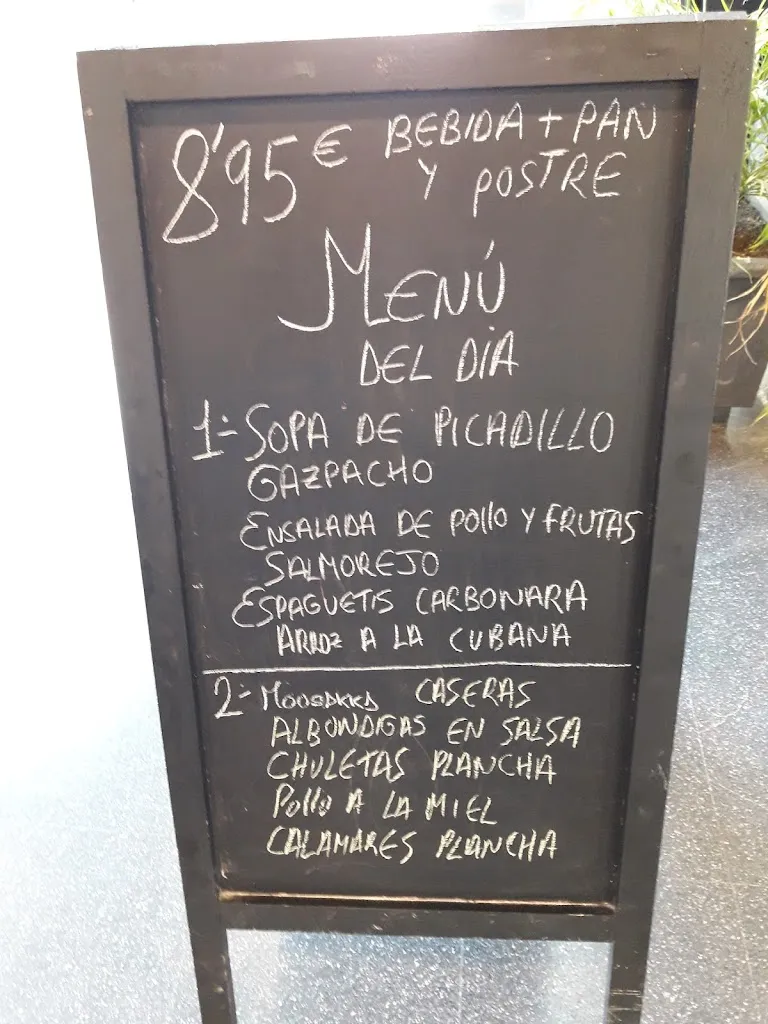 8'95 € BEBIDA + PAN
Y POSTRE
MENÚ
DEL DÍA
1:- SOPA DE PICADILLO
GAZPACHO
ENSALADA DE POLLO Y FRUTAS
SALMOREJO
ESPAGUETIS CARBONARA
ARROZ A LA CUBANA
2:- CASERAS
ALBONDIGAS EN SALSA
CHULETAS PLANCHA
POLLO A LA MIEL
CALAMARES PLANCHA